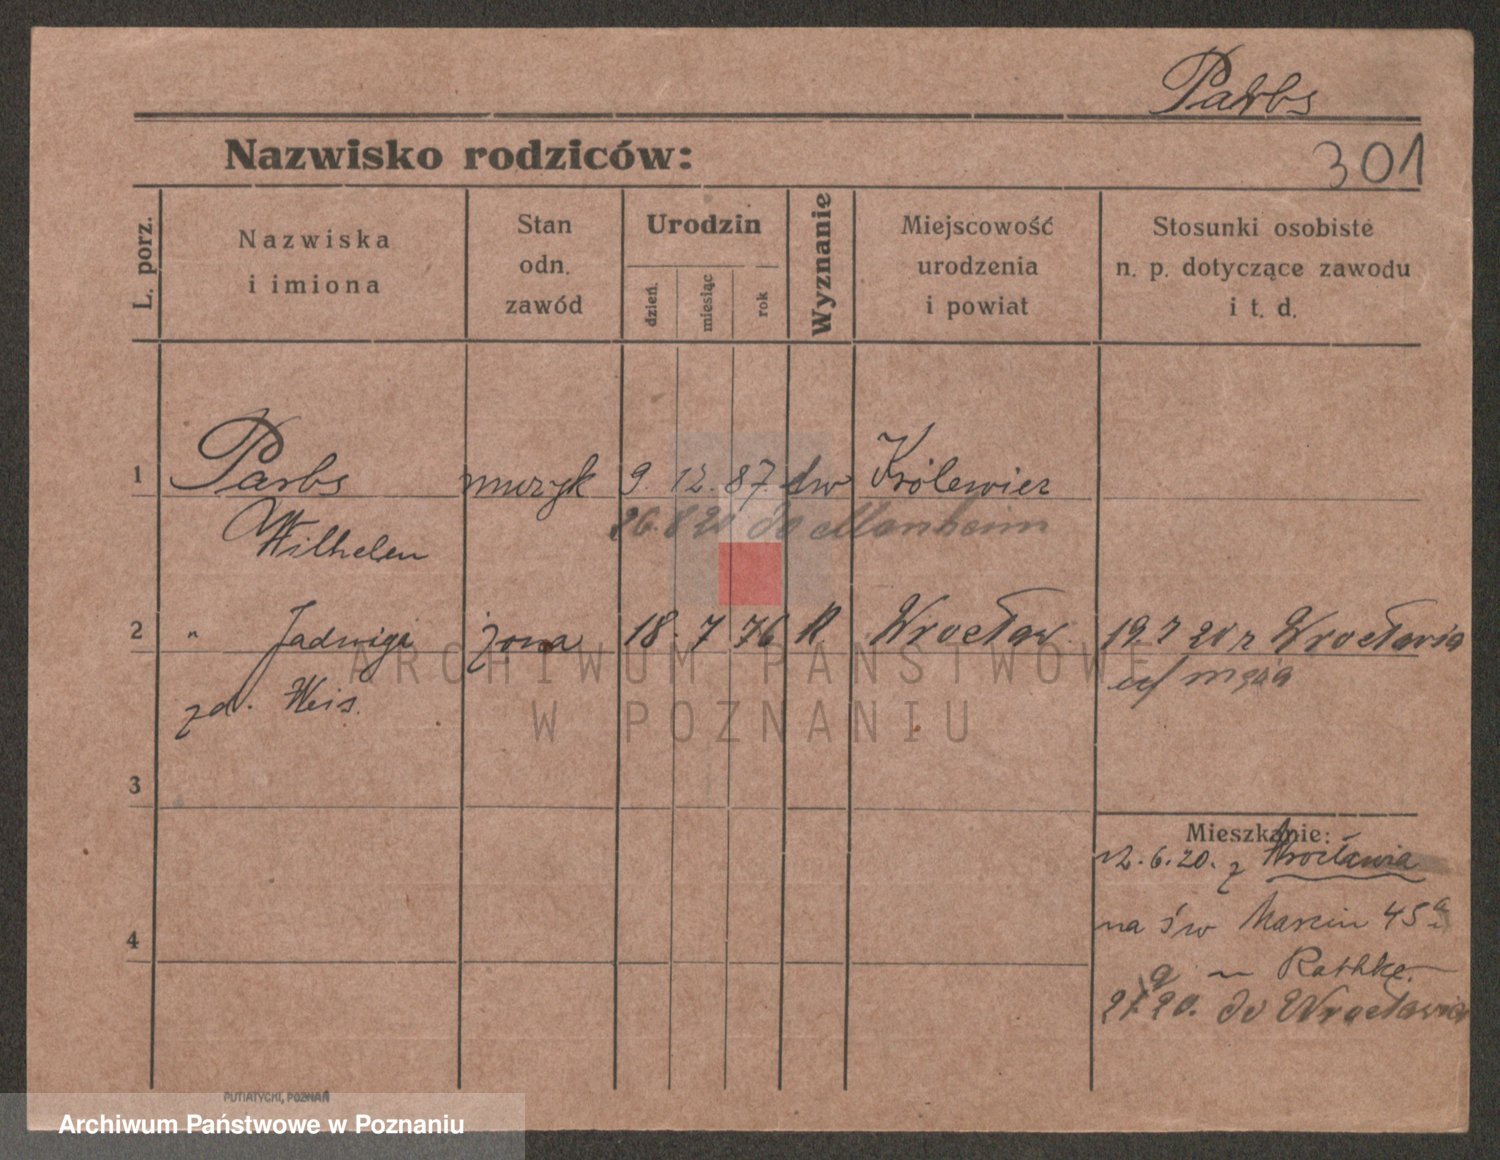 Parbs
Nazwisko rodziców:
301
L. porz.
Nazwiska
i imiona
Stan
odn.
zawód
Urodzin
dzień.
miesiąc
rok
Wyznanie
Miejscowość
urodzenia
i powiat
Stosunki osobiste
n. p. dotyczące zawodu
i t. d.
1 Parbs muzyk 9. 12. 87. Królewiec
Wilhelm
26.8 20 do Manheim
2 " Jadwiga żona 18. 7 76 K. Wrocław. 19.7 20 z Wrocławia
męża
zd. Weis.
3
Mieszkanie:
12.6.20. z Wrocławia
na św Marcin 45a
4
Rathke.
20. do Wrocławia
PUTIATYCKI, POZNAŃ
ARCHIWUM PAŃSTWOWE
W POZNANIU
Archiwum Państwowe w Poznaniu